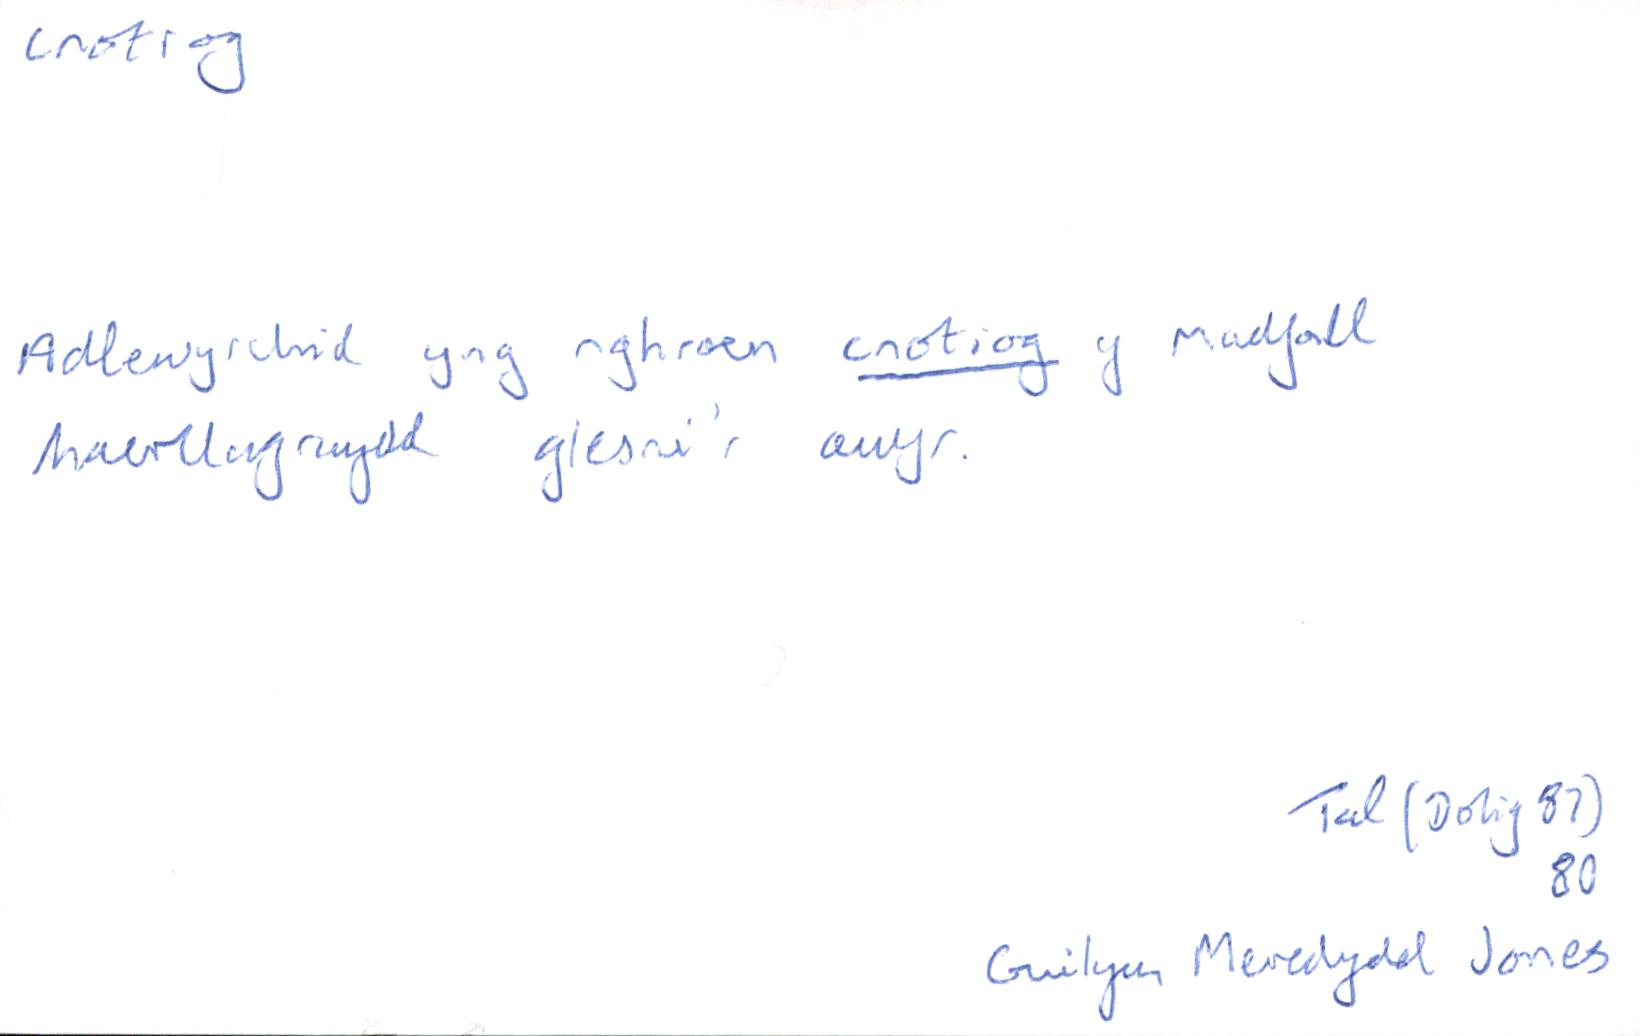 cnotiog
Adlewyrchid yng nghroen cnotiog y madfall
haerllugrwydd glesni'r awyr.
Tal (Dolig 87)
80
Gwilym Meredydd Jones